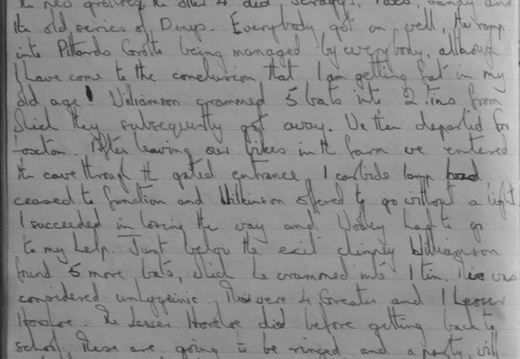 the new grotto, the other 4 did, Scraggs, and
the old series of Denys. Everybody got on well, the
into Pitards Grotto being managed by everybody, although
I have come to the conclusion that I am getting fat in my
old age! Williamson crammed 5 bats into 2 tins from
which they subsequently got away. We then departed for
After leaving our bikes in the farm we entered
the cave through the gated entrance. 1 carbide lamp had
ceased to function and Wilkinson offered to go without a light.
I succeeded in losing the way and had to go
to my help. Just below the exit chimney Williamson
found 5 more bats, which he crammed into 1 tin. was
considered unhygienic. There were 4 Greater and 1 Lesser
Horshoe. The Lesser Horshoe died before getting back to
school. These are going to be ringed and a party will